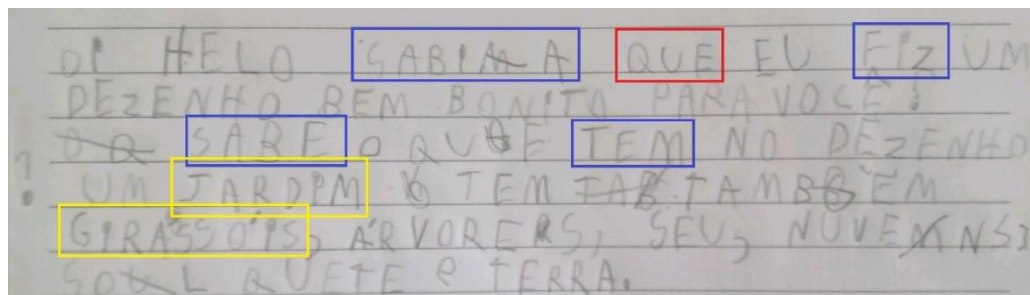 OI HELO SABIA QUE EU FIZ UM
DEZENHO BEM BONITO PARA VOCÊ!
SABE O QUE TEM NO DEZENHO
? UM JARDIM TEM TAMBÉM
GIRASSÓIS, ÁRVORERS, SEU, NUVENS,
SOL QUETE e TERRA.